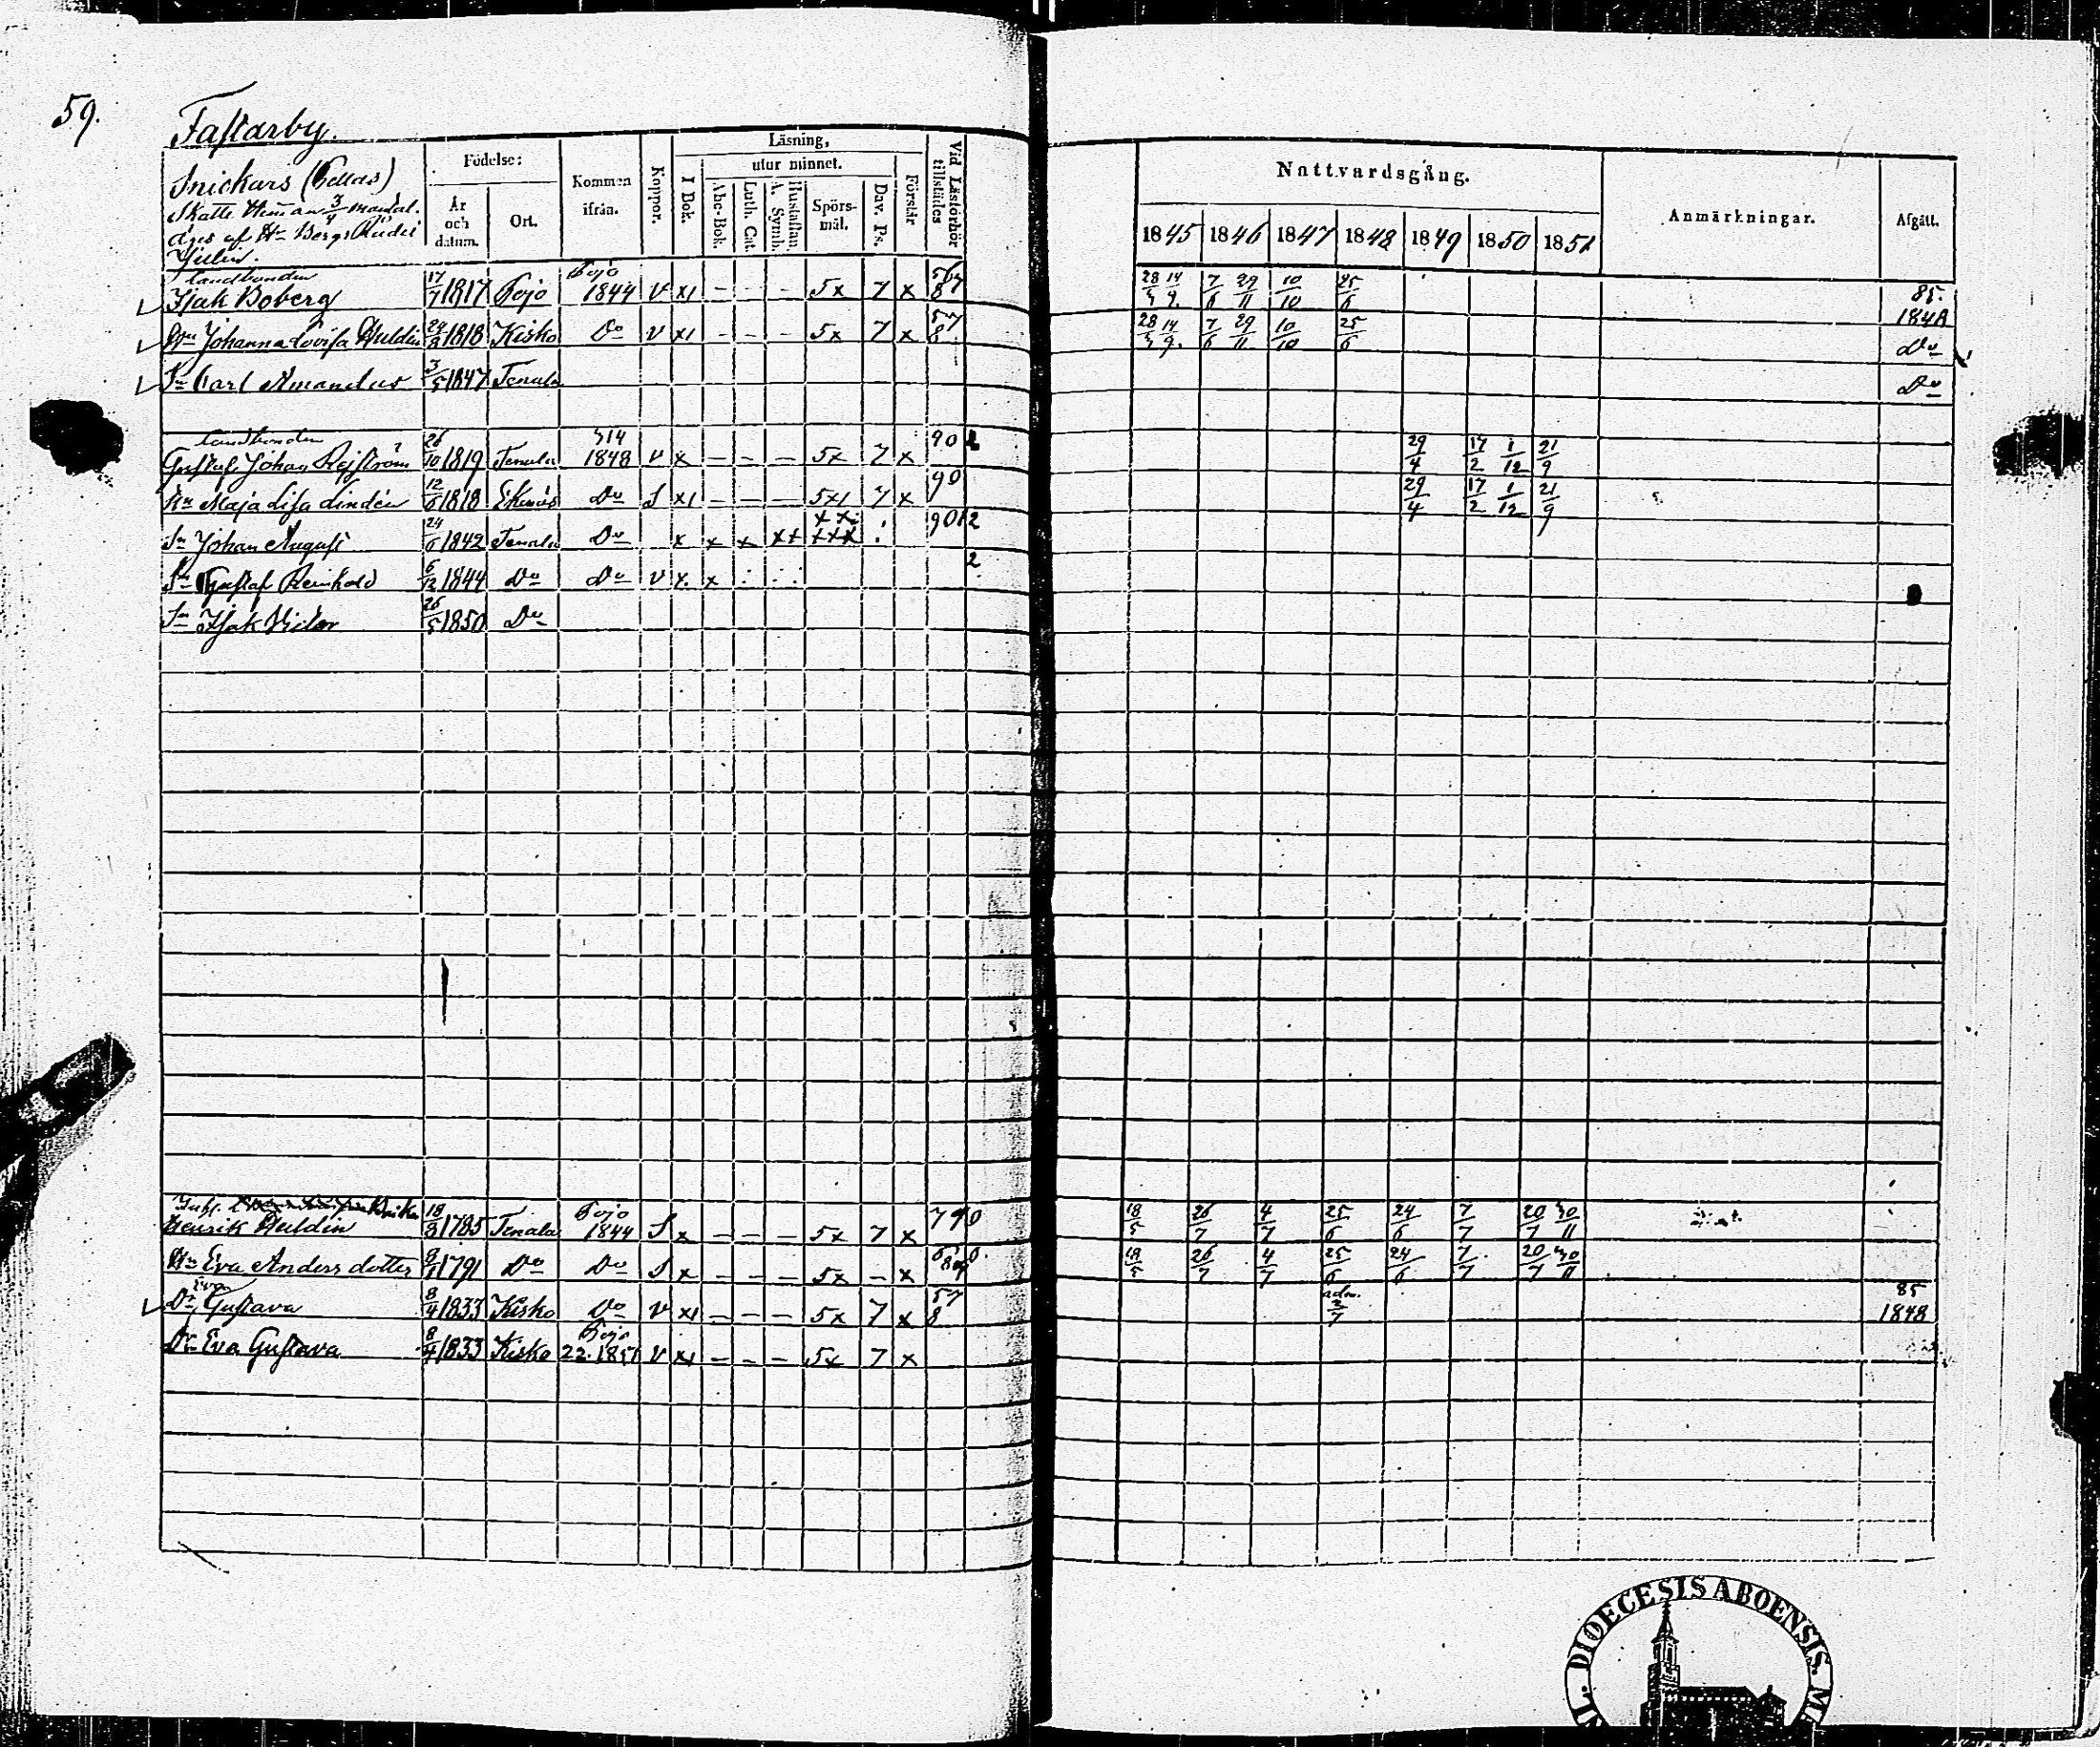 59.
Fastarby.
Snickars
Skatte Heman 3/4 mantal.
äges af Hr Bergs Rådet
Julin.
Födelse:
År och datum.
Ort.
Kommen ifrån.
Koppor.
Läsning,
utur minnet.
I Bok.
Abc-Bok.
Luth. Cat.
Hustaflan. A. Symb.
Spörsmål.
Dav. Ps.
Förstår
Vid Läsförhör tillstädes
Nattvardsgång.
1845 1846 1847 1848 1849 1850 1851
Anmärkningar.
Afgått.
Landbonden Pojo
Isak Boberg 17/7 1817 Pojo 1844 v x1 – – – 5x 7 x 28/5 14/9 7/6 29/11 10/10 25/6 85. 1848
Hu Johanna Lovisa Huldin 1818 Kisko Do v x1 – – – 5x 7 x 57 8 28/5 14/9. 7/6 29/11 10/10 25/6 Do
Sn Carl Amandus 3/5 1847 Tenala Do
Landbonden
Gustaf Johan Rejström 26/10 1819 Tenala 1848 v x – – – 5x 7 x 90 29/4 17/2 1/12 21/9
Hu Maja Lisa Lindén 12/6 1818 Ekenäs Do S x1 – – – 5x1 7 x 90 29/4 17/2 1/12 21/9
Sn Johan August 24/6 1842 Tenala Do x x x xx xxx 9012
Sn Gustaf Reinhold 6/12 1844 Do Do v x. x 2
Sn Isak Vilm 26/5 1850 Do
Inh. Pojo
Henrik Huldin 18/3 1785 Tenala 1844 S x – – – 5x 7 x 790 18/5 26/7 4/7 25/6 24/6 7/7 20/7 30/11
Hu Eva Anders dotter 8/1 1791 Do Do S x – – – 5x – x 18/5 26/7 4/7 25/6 24/6 7/7 20/7 30/11
Eva
Dr Gustava 8/4 1833 Kisko Do v x1 – – – 5x 7 x 57 8 adm. 2/7 85 1848
Dr Eva Gustava 8/4 1833 Kisko Pojo 22. 1851 v x1 – – – 5x 7 x
DIOECESIS ABOENSIS. M